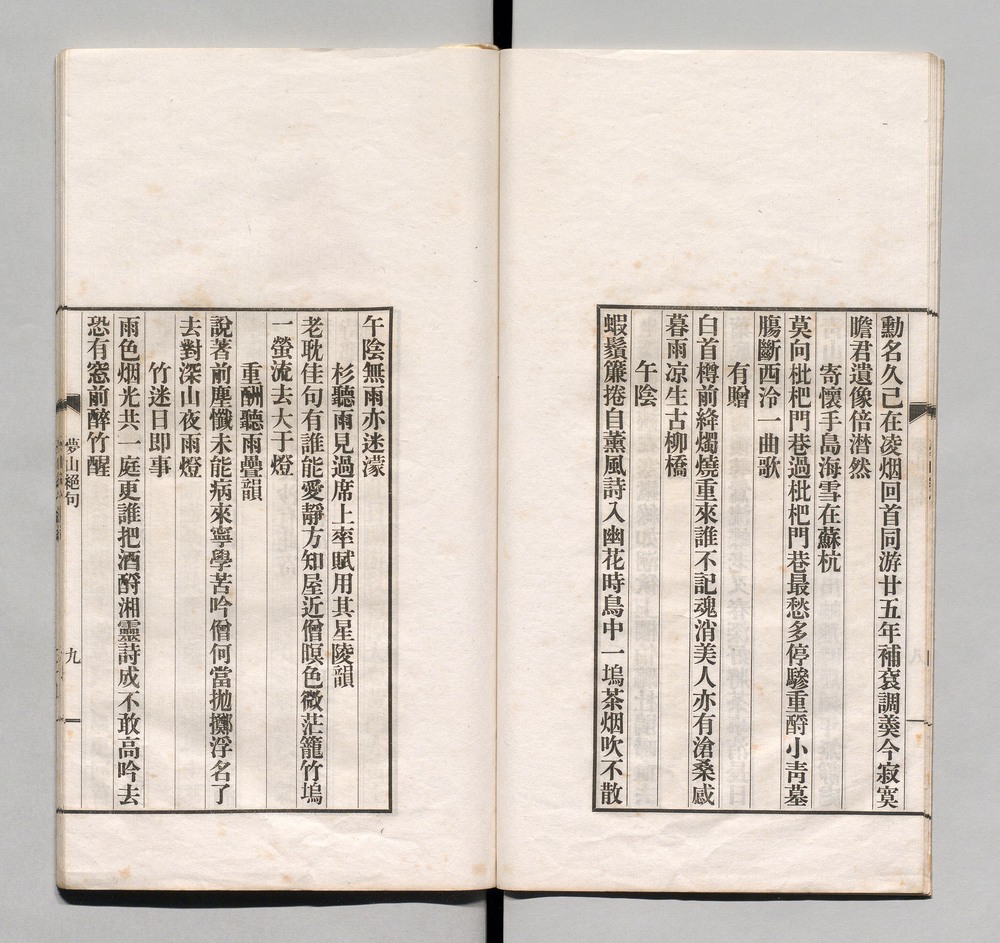 勳名久已在凌烟回首同游廿五年補袞調羹今寂寞
瞻君遺像倍潸然
寄懷手島海雪在蘇杭
莫向枇杷門巷過枇杷門巷最愁多停驂重酹小青墓
腸斷西泠一曲歌
有贈
白首樽前絳燭燒重來誰不記魂消美人亦有滄桑感
暮雨凉生古柳橋
午陰
蝦鬚簾捲自薰風詩入幽花時鳥中一塢茶烟吹不散
午陰無雨亦迷濛
杉聽雨見過席上率賦用其星陵韻
老耽佳句有誰能愛靜方知屋近僧暝色微茫籠竹塢
一螢流去大于燈
重酬聽雨疊韻
說著前塵懺未能病來寧學苦吟僧何當抛擲浮名了
去對深山夜雨燈
竹迷日即事
雨色烟光共一庭更誰把酒酹湘靈詩成不敢高吟去
恐有窓前醉竹醒
夢山絕句
九